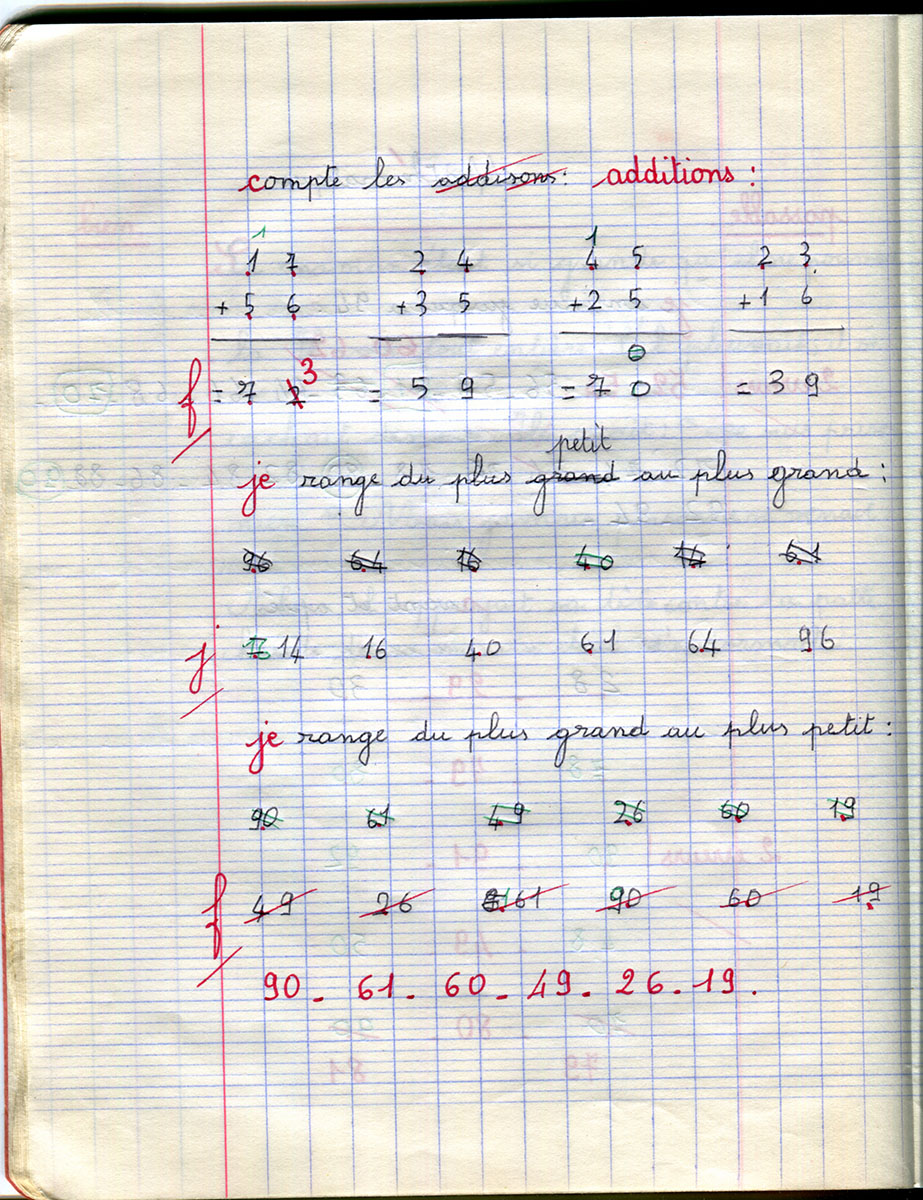 compte les addisons: additions :
1 1
1 7 2 4 4 5 2 3
+ 5 6 + 3 5 + 2 5 + 1 6
0
3
f = 7 2 = 5 9 = 7 0 = 3 9
petit
je range du plus grand au plus grand :
96 64 16 40 14 61
j 16 14 16 40 61 64 96
je range du plus grand au plus petit :
90 61 49 26 60 19
f 49 26 61 90 60 19
90 - 61 - 60 - 49 - 26 - 19 .